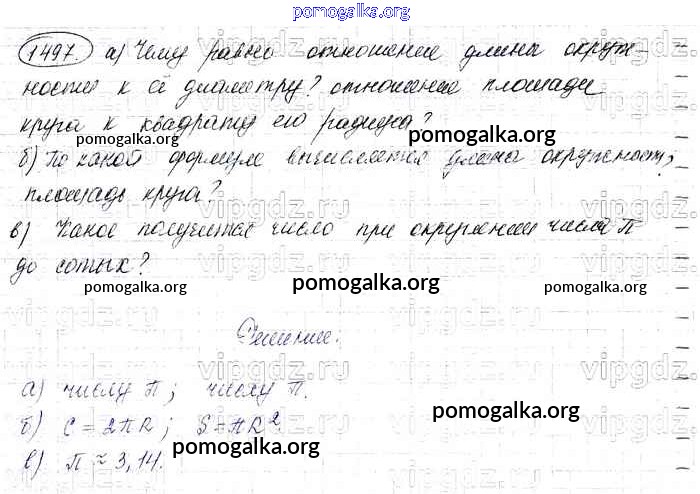 pomogalka.org
1497. а) Чему равно отношение длины окруж-
ности к её диаметру? отношение площади
круга к квадрату его радиуса?
pomogalka.org pomogalka.org
б) По какой формуле вычисляется длина окружности;
площадь круга?
в) Какое получается число при округлении числа π
до сотых?
pomogalka.org pomogalka.org pomogalka.org
Решение:
а) числу π; числу π.
б) C = 2πR; S = πR²
pomogalka.org
в) π ≈ 3,14.
pomogalka.org
vipgdz.ru